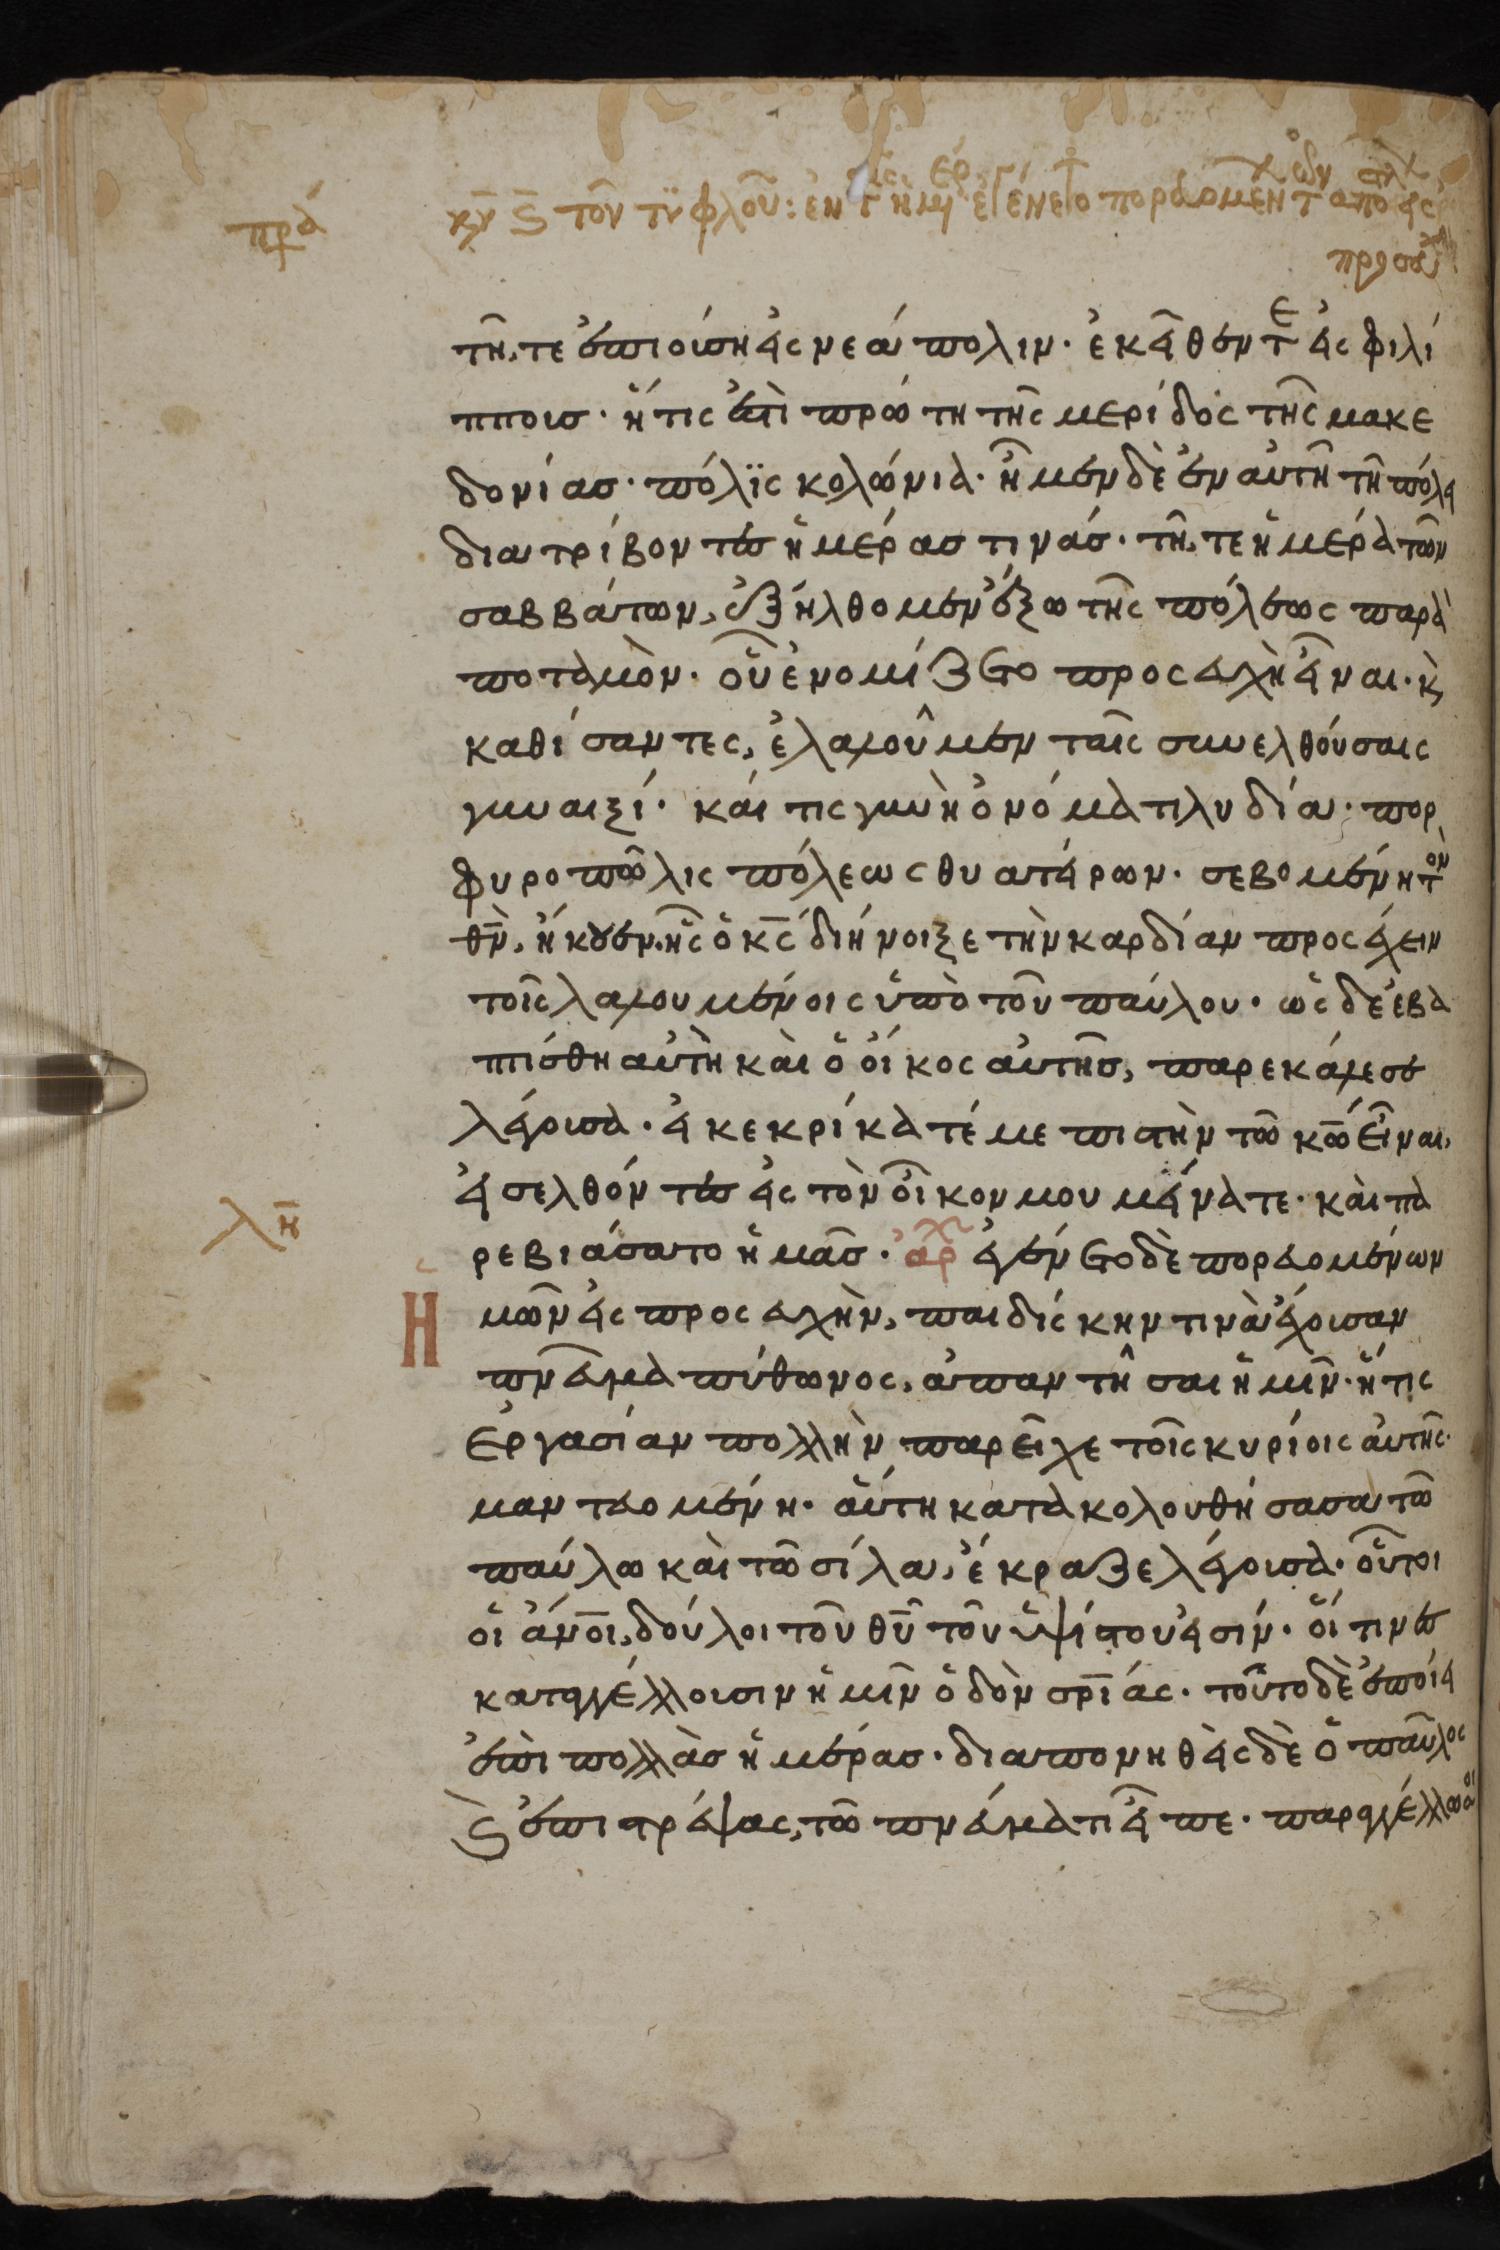 πρά
κυ ς τοῦ τυφλοῦ: ἐν τ ἡμ ἐγένετο πορευομεν τ αποσ
τῆ τε ἐπιούση εἰς νεάπολιν· ἐκεῖθέν τε εἰς φιλί
πποισ· ἥτις ἐστὶ πρώτη τῆς μερίδος τῆς μακε
δονίασ· πόλϊς κολώνια· ἦμεν δὲ ἐν αὐτῆ τῆ πόλει
διατρίβοντεσ ἡμέρασ τινάσ· τῆ τε ἡμέρα τῶν
σαββάτων, ἐξήλθομεν ἔξω τῆς πόλεως παρὰ
ποταμὸν· οὗ ἐνομίζετο προσευχὴ εἶναι· κ̀
καθίσαντες, ἐλαλοῦμεν ταῖς συνελθούσαις
γυναιξί· καί τις γυνὴ ὀνόματι λυδία· πορ
φυροπῶλις πόλεως θυατείρων· σεβομένη τὸν
θν̄, ἤκουεν· ἧς ὁ κς̄ διήνοιξε τὴν καρδίαν προσέχειν
τοῖς λαλουμένοις ὑπὸ τοῦ παύλου· ὡς δὲ ἐβα
πτίσθη αὐτὴ καὶ ὁ οἶκος αὐτῆσ, παρεκάλεσε
λέγουσα· εἰ κεκρίκατέ με πιστὴν τῶ κω̄ εἶναι,
εἰσελθόντεσ εἰς τὸν οἶκον μου μείνατε· καὶ πα
λη̄
ρεβιάσατο ἡμᾶσ· ἀρχ ἐγένετο δὲ πορευομένων
Ἡ
μῶν εἰς προσευχὴν, παιδίσκην τινὰ ἔχουσαν
πνεῦμα πύθωνος, ἀπαντῆσαι ἡμῖν· ἥτις
ἐργασίαν πολλὴν παρεῖχε τοῖς κυρίοις αὐτῆς·
μαντευομένη· αὕτη κατακολουθήσασα τῶ
παύλω καὶ τῶ σίλα, ἔκραζε λέγουσα· οὗτοι
οἱ ἄνοι, δούλοι τοῦ θῡ τοῦ ὑψίστου εἰσίν· οἵτινεσ
καταγγέλλουσιν ἡμῖν ὁδὸν σρ̄ίας· τοῦτο δὲ ἐποίει
ἐπὶ πολλὰσ ἡμέρασ· διαπονηθεὶς δὲ ὁ παῦλος
ς̀ ἐπιστρέψας, τῶ πνεύματι εἶπε· παραγγέλλω σοι